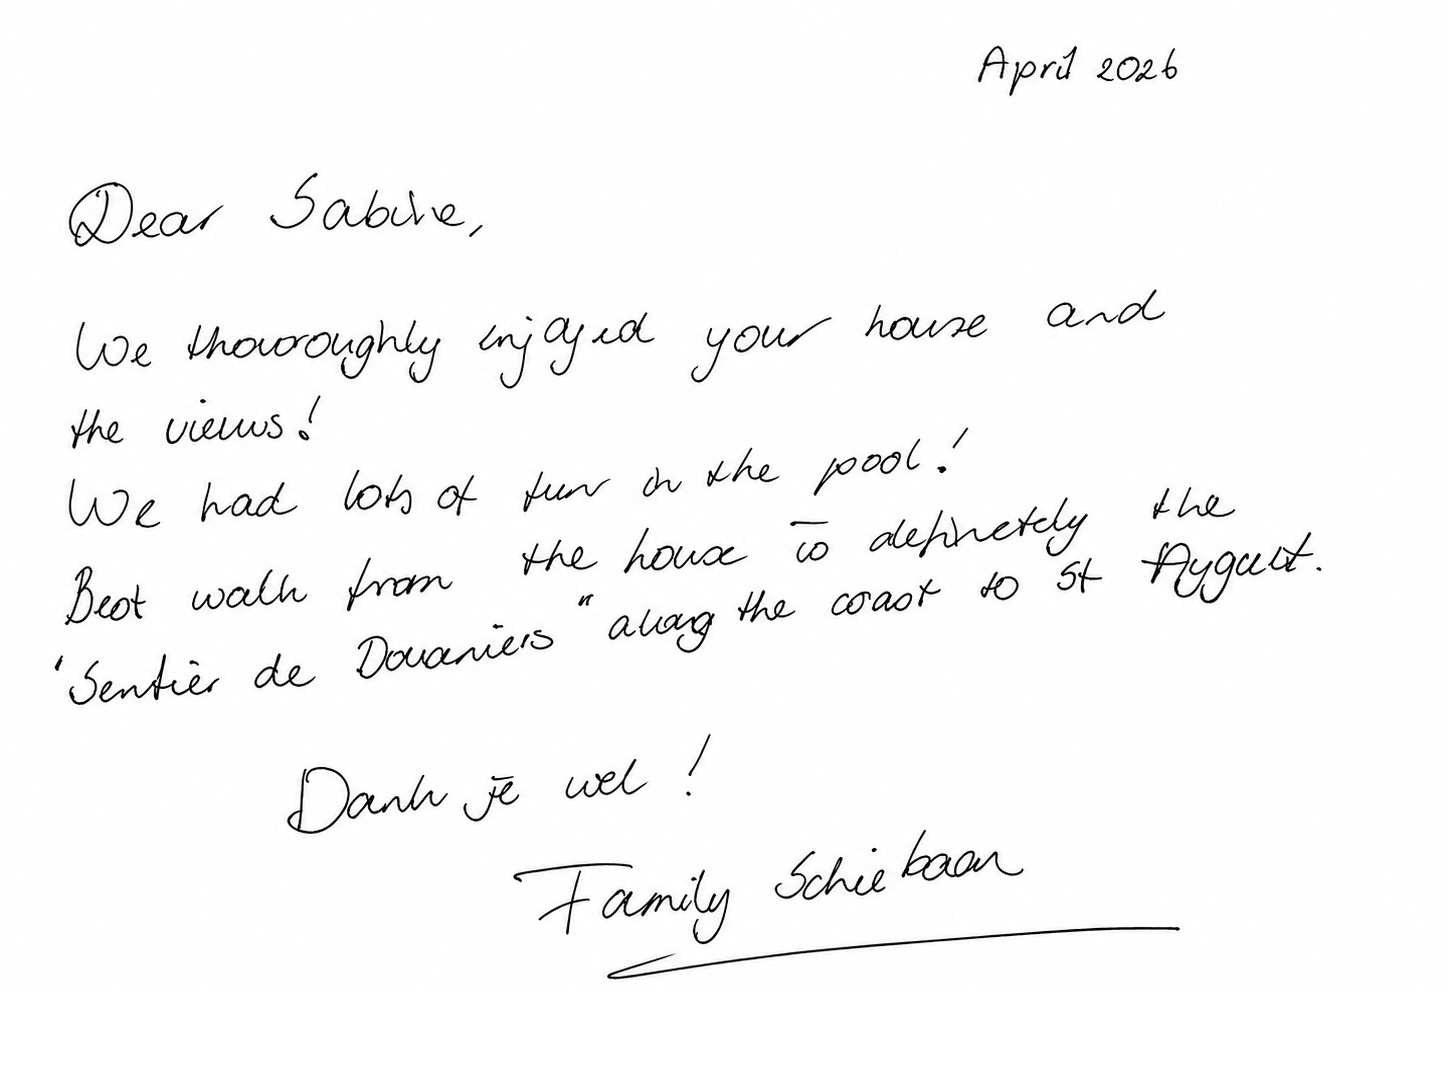 April 2026
Dear Sabine,
We thoroughly enjoyed your house and
the views!
We had lots of fun in the pool!
Best walk from the house is definetely the
"Sentier de Douaniers" along the coast to St Aygulf.
Dank je wel!
Family Schiebaan